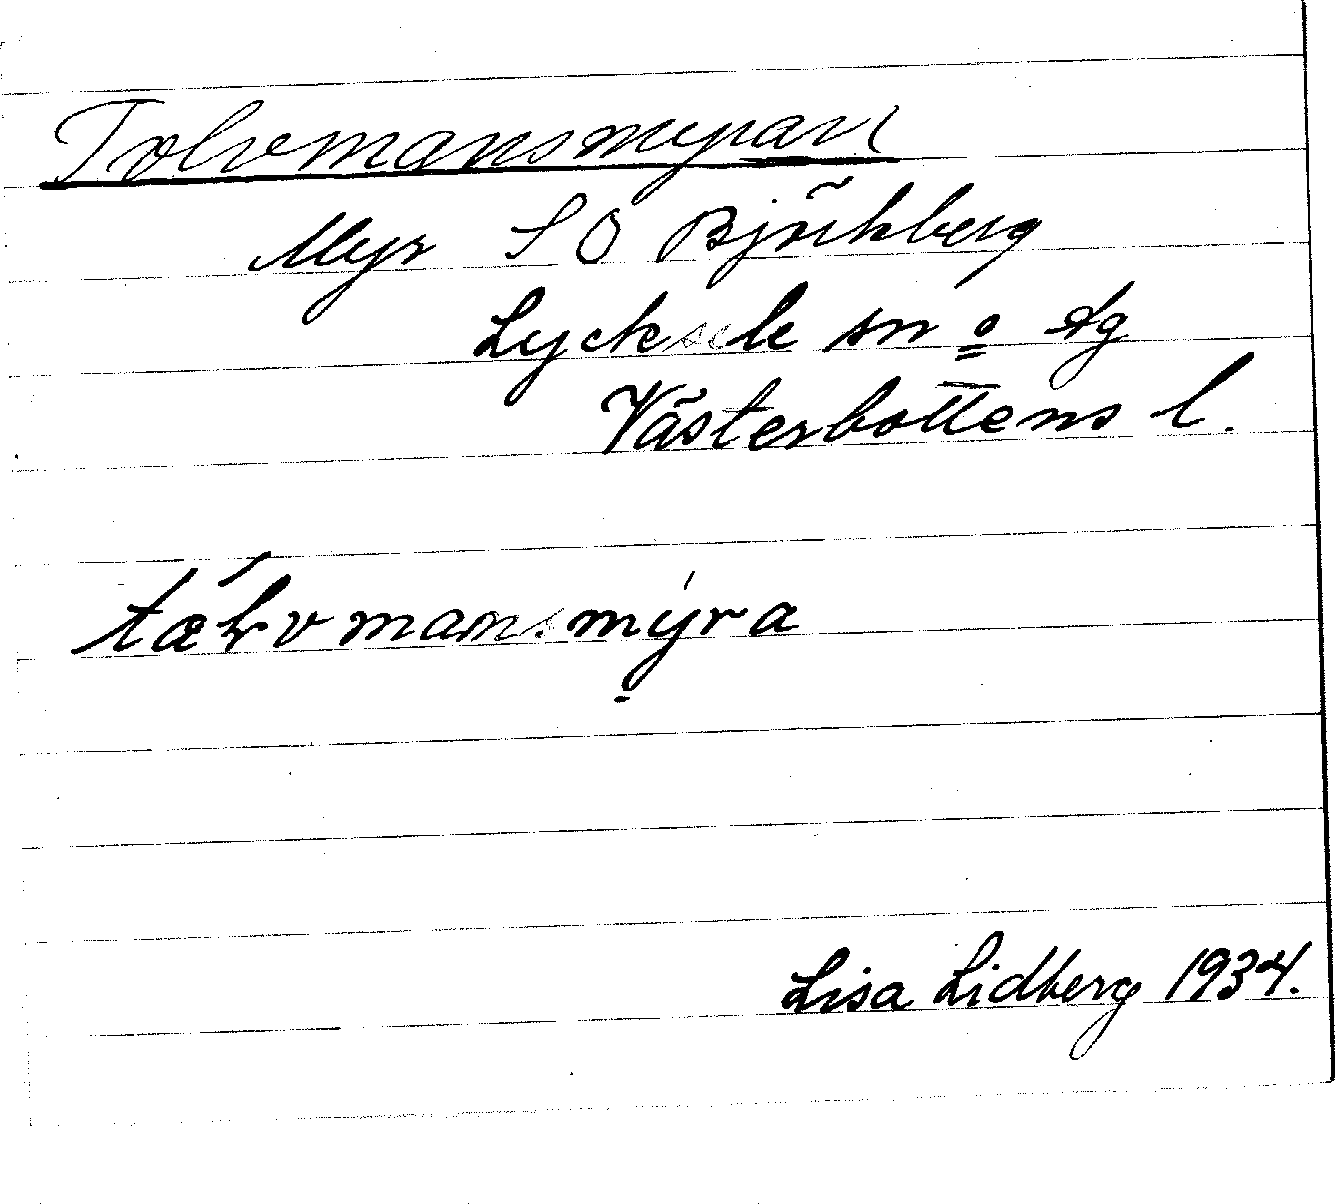 Tolvmansmyran
Myr S O Björkberg
Lycksele sn o tg
Västerbottens l.
tælvmansmýra
Lisa Lidberg 1934.